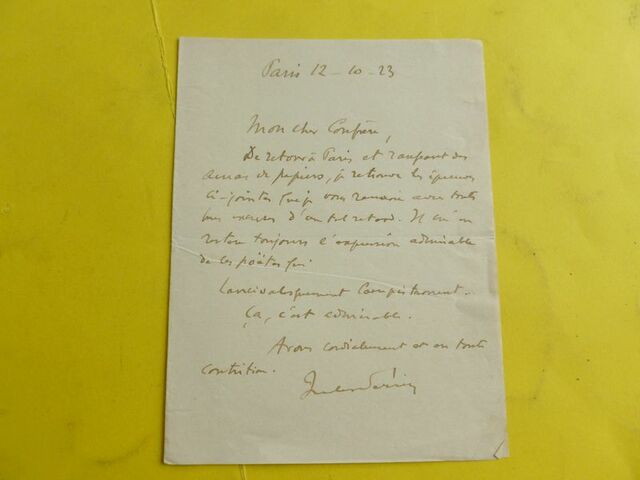 Paris 12 - 10 - 23
Mon cher Confrère,
De retour à Paris et rangeant des
amas de papiers, je retrouve les épreuves
ci-jointes que je vous renvoie avec toutes
mes excuses d'un tel retard. Il m'en
restera toujours l'expression admirable
de ces poëtes qui
compissèrent.
Ça, c'est admirable.
A vous cordialement et en toute
contrition.